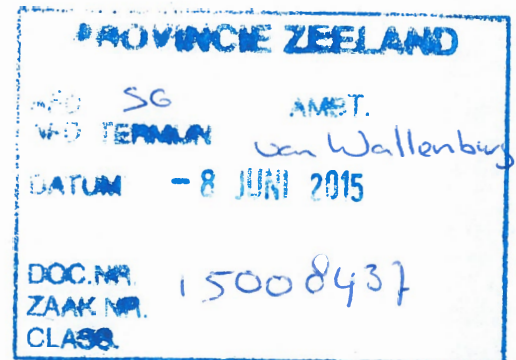 PROVINCIE ZEELAND
AFD SG AMBT.
AFD TERMIJN van Wallenburg
DATUM - 8 JUNI 2015
DOC.NR. 15008437
ZAAK NR.
CLASS.